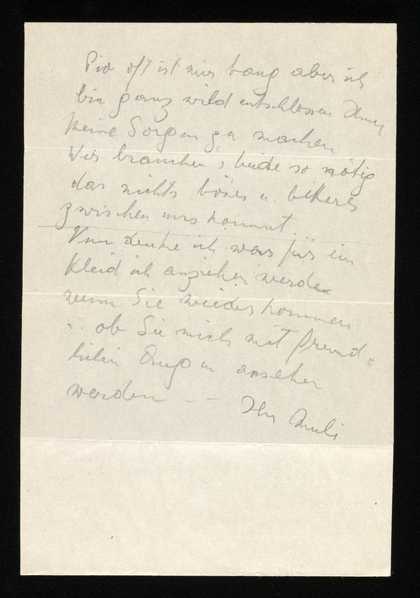 oft ist mir bang aber ich
bin ganz wild entschlossen Ihnen
keine Sorgen zu machen
Wir brauchen's beide so nötig
das nichts böses u.
zwischen uns kommt
denke ich was für ein
Kleid ich anziehen werde
wenn Sie wieder kommen
u. ob Sie mich mit freund=
lichen Augen ansehen
werden — Ihr